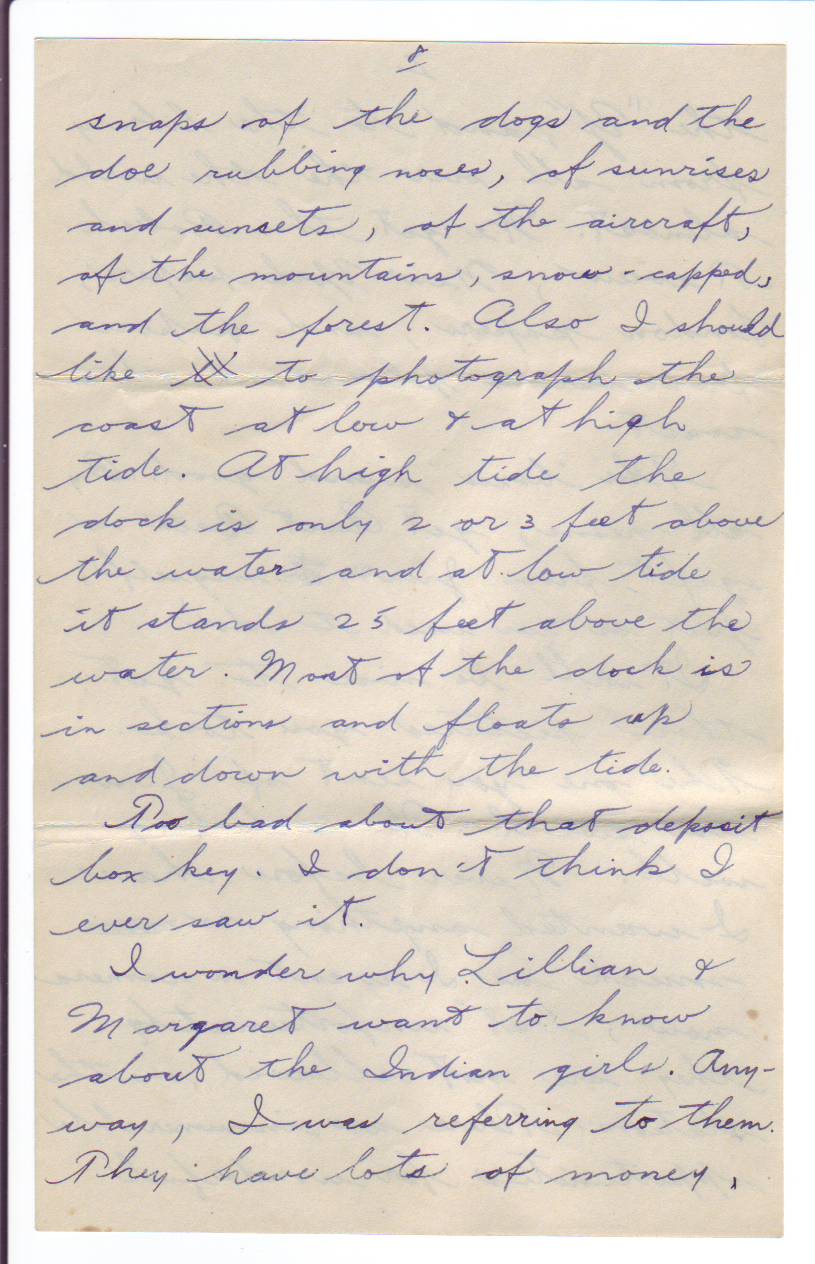 8
snaps of the dogs and the
doe rubbing noses, of sunrises
and sunsets, of the aircraft,
of the mountains, snow-capped,
and the forest. Also I should
like to photograph the
coast at low & at high
tide. At high tide the
dock is only 2 or 3 feet above
the water and at low tide
it stands 25 feet above the
water. Most of the dock is
in sections and floats up
and down with the tide.
Too bad about that deposit
box key. I don't think I
ever saw it.
I wonder why Lillian &
Margaret want to know
about the Indian girls. Any-
way, I was referring to them.
They have lots of money,